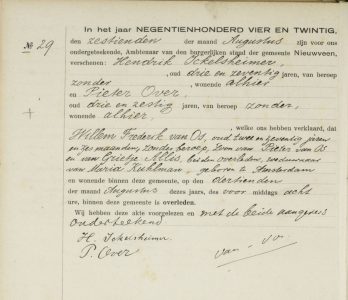 № 29
In het jaar NEGENTIENHONDERD VIER EN TWINTIG,
den zestienden der maand Augustus zijn voor ons
ondergeteekende, Ambtenaar van den burgerlijken stand der gemeente Nieuwveen,
verschenen: Hendrik Ickelsheimer,
, oud drie en zeventig jaren, van beroep
zonder, wonende alhier
en Pieter Over,
oud drie en zestig jaren, van beroep zonder,
wonende alhier,
, welke ons hebben verklaard, dat
Willem Frederik van Os, oud twee en zeventig jaren
en zes maanden, zonder beroep, zoon van Pieter van Os
en van Grietje Allis, beiden overleden, weduwnaar
van Maria Kuhlman, geboren te Amsterdam
en wonende binnen deze gemeente, op den
der maand Augustus dezes jaars, des voor middags acht
ure, binnen deze gemeente is overleden.
Wij hebben deze akte voorgelezen en met de beide aangevers
onderteekend
H. Ickelsheimer
P. Over